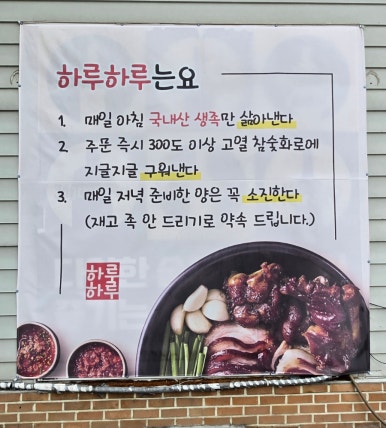 하루하루는요
1. 매일 아침 국내산 생족만 삶아낸다
2. 주문 즉시 300도 이상 고열 참숯화로에
지글지글 구워낸다
3. 매일 저녁 준비한 양은 꼭 소진한다
(재고 족 안 드리기로 약속 드립니다.)
하루
하루